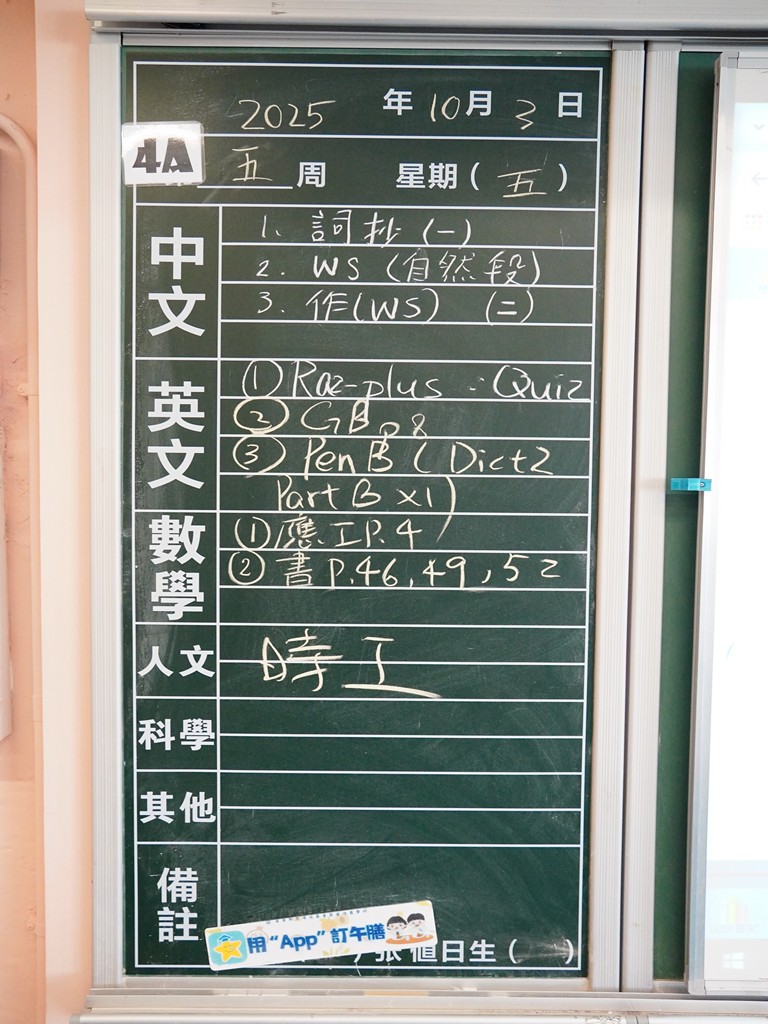 2025 年 10 月 3 日
4A
五 周 星期 ( 五 )
中文
1. 詞抄 (一)
2. WS (自然段)
3. 作(WS) (二)
英文
① Raz-plus : Quiz
② GB p8
③ Pen B ( Dict 2
Part B x1)
數學
① 應工 P.4
② 書 P.46, 49, 52
人文
時工
科學
其他
備註
用“App”訂午膳
張 值日生 ( )